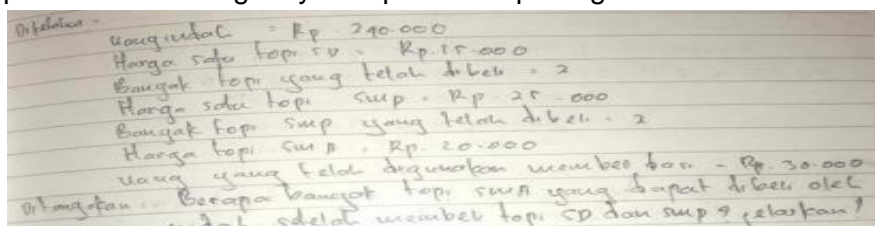 Diketahui -
uang indah = Rp 240.000
Harga satu topi SD = Rp. 15.000
Banyak topi yang telah dibeli = 2
Harga satu topi smp = Rp. 25.000
Banyak topi smp yang telah dibeli = 2
Harga topi SMA = Rp. 20.000
uang yang telah digunakan membeli - Rp. 30.000
Ditanyakan : Berapa banyak topi SMA yang dapat dibeli oleh
setelah membeli topi SD dan smp ? jelaskan !